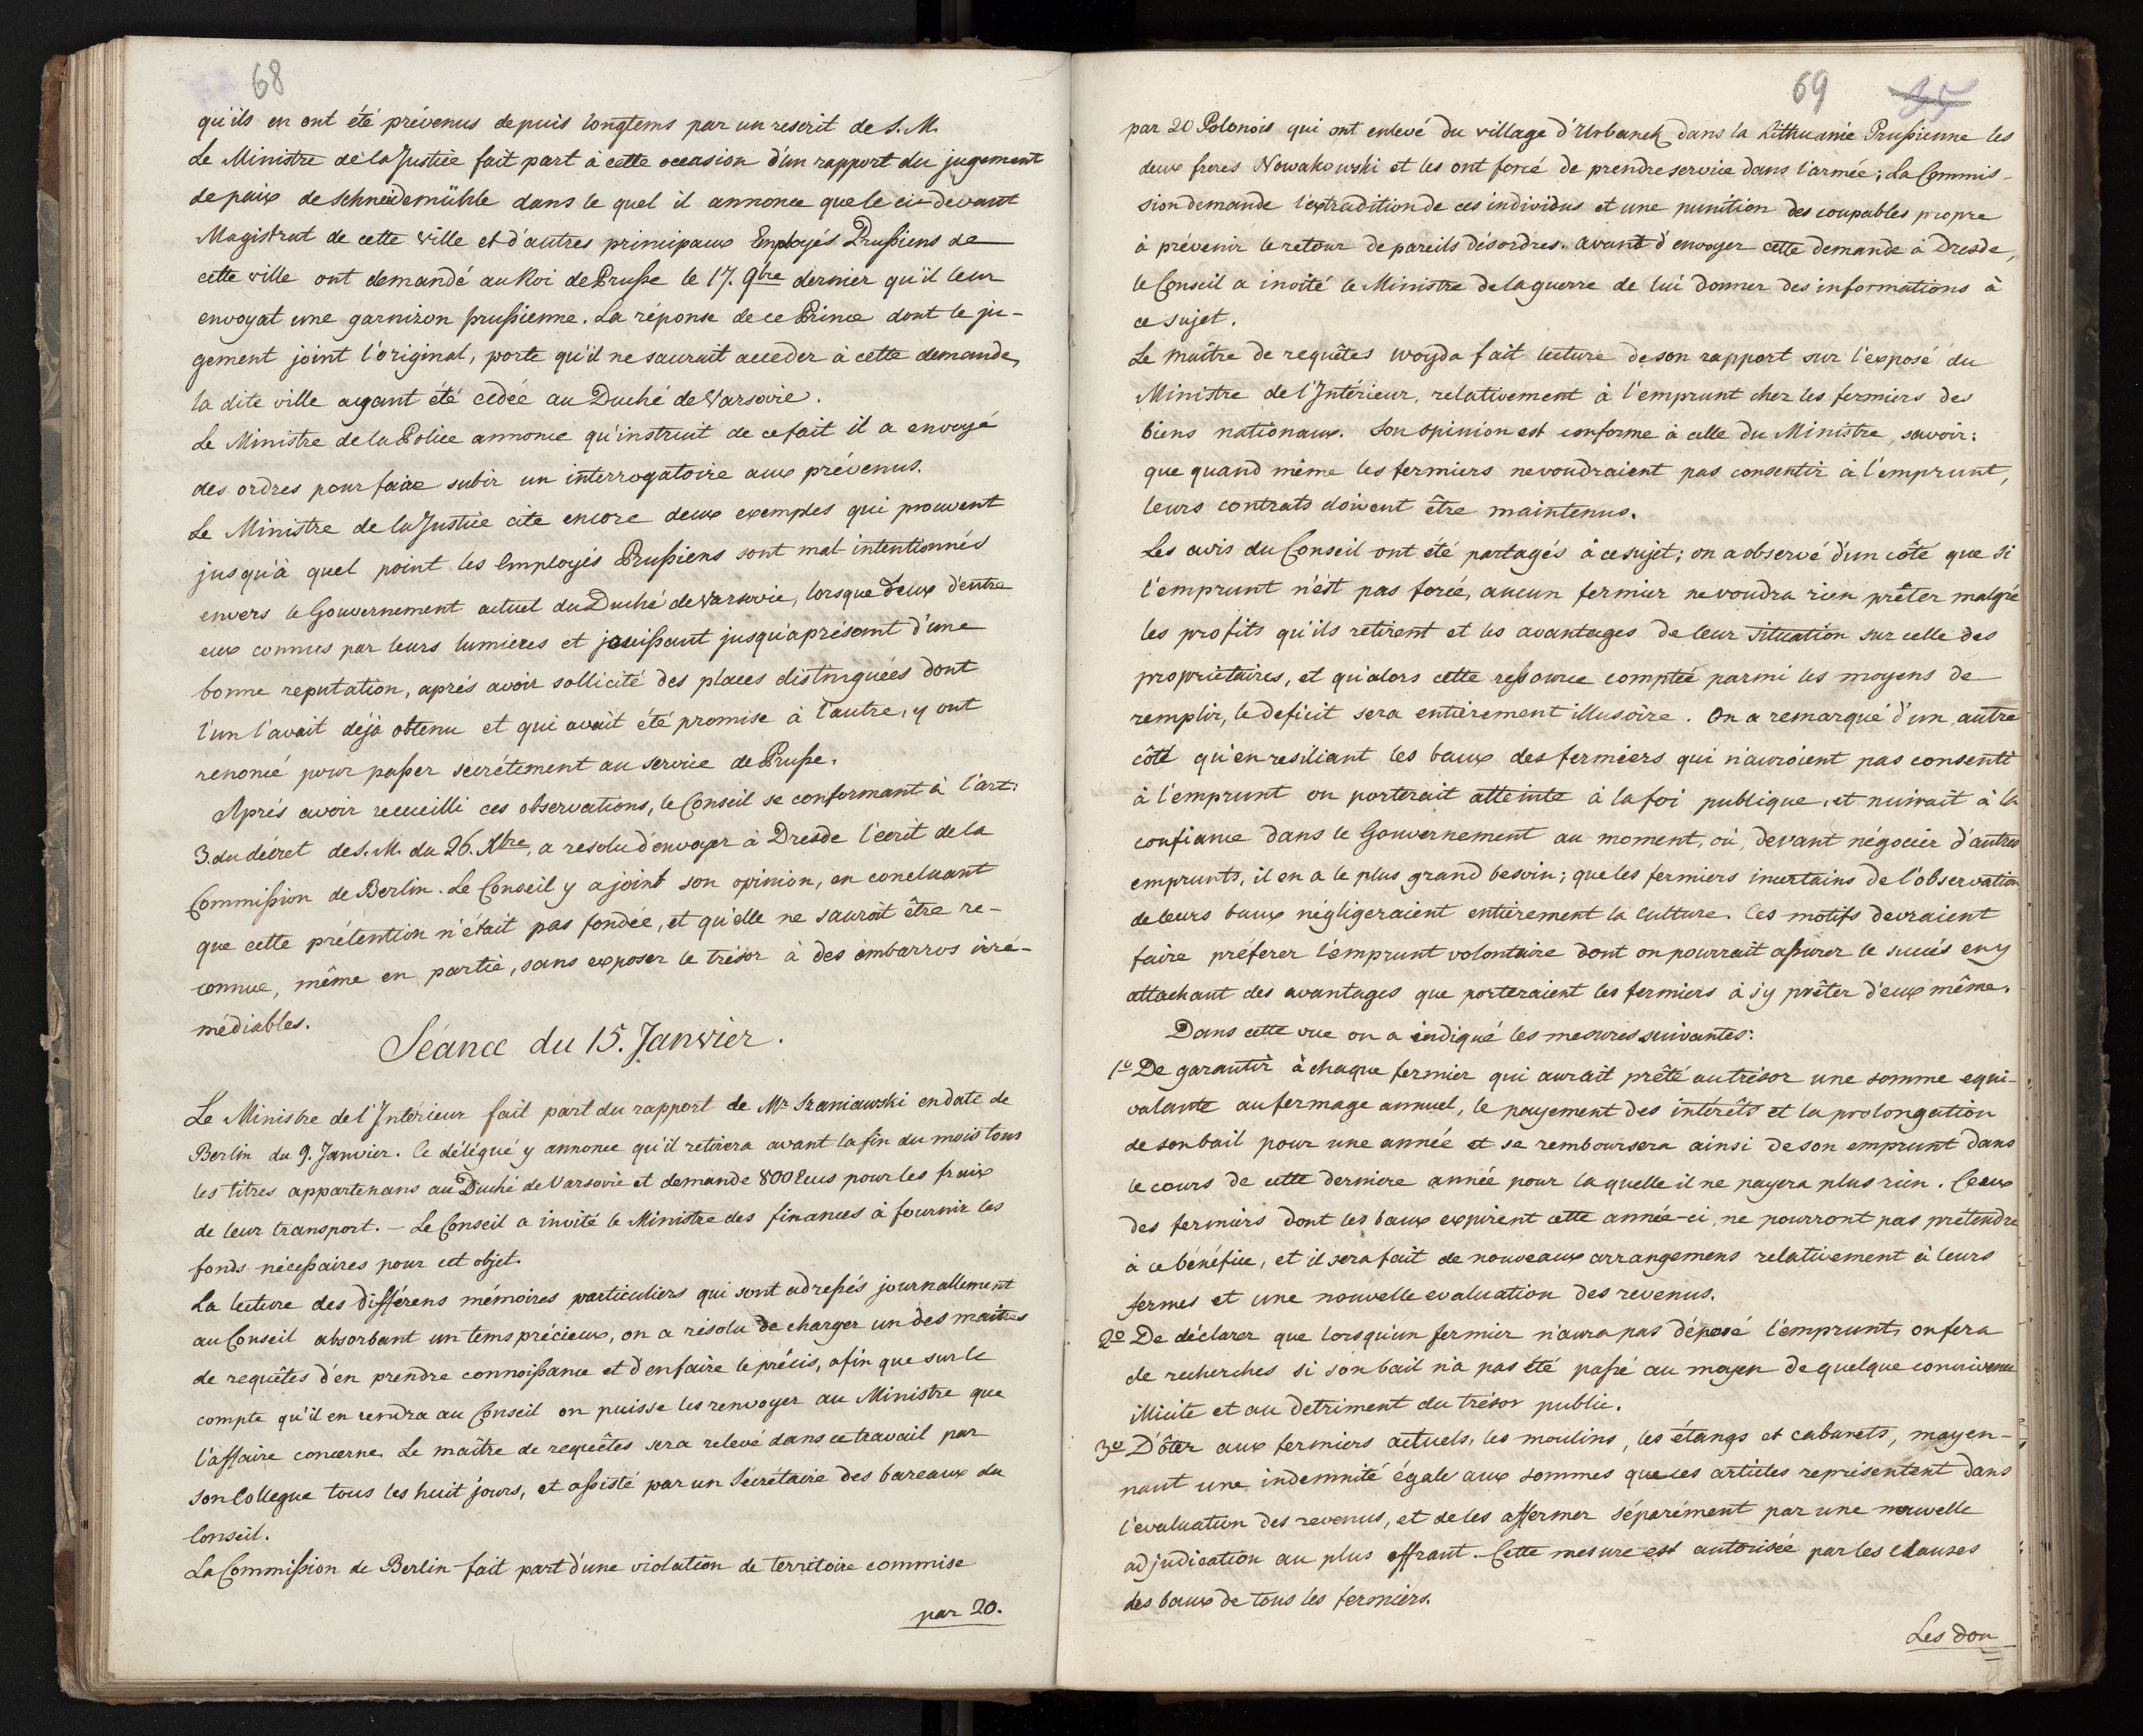 68
qu'ils en ont été prévenus depuis longtems par un rescrit de S. M.
Le Ministre de la Justice fait part à cette occasion d'un rapport du jugement
de paix de Schneidemühle dans le quel il annonce que le ci-devant
Magistrat de cette ville et d'autres principaux Employés Prussiens de
cette ville ont demandé au Roi de Prusse le 17. 9bre dernier qu'il leur
envoyat une garnizon prussienne. La réponse de ce Prince dont le ju-
gement joint l'original, porte qu'il ne saurait acceder à cette demande,
la dite ville ayant été cedée au Duché de Varsovie.
Le Ministre de la Police annonce qu'instruit de ce fait il a envoyé
des ordres pour faire subir un interrogatoire aux prévenus.
Le Ministre de la Justice cite encore deux exemples qui prouvent
jusqu'à quel point les Employés Prussiens sont mal-intentionnés
envers le Gouvernement actuel du Duché de Varsovie, lorsque deux d'entre
eux connus par leurs lumieres et jouissant jusqu'aprésent d'une
bonne reputation, après avoir sollicité des places distinguées dont
l'un l'avait déjà obtenu et qui avait été promise à l'autre, y ont
renoncé pour passer secrétement au service de Prusse.
Après avoir recueilli ces observations, le Conseil se conformant à l'art:
3. du décret de S. M. du 26. Xbre, a resolu d'envoyer à Dresde l'ecrit de la
Commission de Berlin. Le Conseil y a joint son opinion, en concluant
que cette prétention n'était pas fondée, et qu'elle ne sauroit être re-
connue, même en partie, sans exposer le trésor à des embarras irré-
médiables.
Séance du 15. Janvier.
Le Ministre de l'Intérieur fait part du rapport de Mr Szaniawski en date de
Berlin du 9. Janvier. Ce délégué y annonce qu'il retirera avant la fin du mois tous
les titres appartenans au Duché de Varsovie et demande 800 Ecus pour les fraix
de leur transport. - Le Conseil a invité le Ministre des finances à fournir les
fonds nécessaires pour cet objet.
La lecture des différens mémoires particuliers qui sont adressés journallement
au Conseil absorbant un tems précieux, on a résolu de charger un des maitres
de requêtes d'en prendre connoissance et d'en faire le précis, afin que sur le
compte qu'il en rendra au Conseil on puisse les renvoyer au Ministre que
l'affaire concerne. Le maître de requêtes sera relevé dans ce travail par
son Collegue tous les huit jours, et assisté par un Secrétaire des bareaux du
Conseil.
La Commission de Berlin fait part d'une violation de territoire commise
par 20.
69
35
par 20 Polonois qui ont enlevé du village d'Urbanek dans la Lithuanie Prussienne les
deux freres Nowakowski et les ont forcé de prendre service dans l'armée; La Commis-
sion demande l'extradition de ces individus et une punition des coupables propre
à prévenir le retour de pareils désordres. Avant d'envoyer cette demande à Dresde,
le Conseil a invité le Ministre de la guerre de lui donner des informations à
ce sujet.
Le maître de requêtes Woyda fait lecture de son rapport sur l'exposé du
Ministre de l'Intérieur, relativement à l'emprunt chez les fermiers des
biens nationaux. Son opinion est conforme à celle du Ministre, savoir:
que quand même les fermiers ne voudraient pas consentir à l'emprunt,
leurs contrats doivent être maintenus.
Les avis du Conseil ont été partagés à ce sujet; on a observé d'un côté que si
l'emprunt n'est pas forcé, aucun fermier ne voudra rien prêter malgré
les profits qu'ils retirent et les avantages de leur situation sur celle des
proprietaires, et qu'alors cette ressource comptée parmi les moyens de
remplir, le deficit sera entièrement illusoire. On a remarqué d'un autre
côté qu'en resiliant les baux des fermiers qui n'auroient pas consenti
à l'emprunt on porterait atteinte à la foi publique, et nuirait à la
confiance dans le Gouvernement au moment, où, devant négocier d'autres
emprunts, il en a le plus grand besoin; que les fermiers incertains de l'observation
de leurs baux négligeraient entièrement la Culture. Ces motifs devraient
faire preferer l'emprunt volontaire dont on pourrait assurer le succés en y
attachant des avantages que porteraient les fermiers à s'y prêter d'eux même.
Dans cette vue on a indiqué les mesures suivantes:
1o De garantir à chaque fermier qui aurait prêté au trésor une somme equi-
valante au fermage annuel, le payement des intérêts et la prolongation
de son bail pour une année et se remboursera ainsi de son emprunt dans
le cours de cette derniere année pour la quelle il ne payera plus rien. Ceux
des fermiers dont les baux expirent cette année-ci, ne pourront pas prétendre
à ce bénéfice, et il sera fait de nouveaux arrangemens relativement à leurs
fermes et une nouvelle evaluation des revenus.
2o De déclarer que lorsqu'un fermier n'aura pas déposé l'emprunt, on fera
de recherches si son bail n'a pas été passé au moyen de quelque connivence
illicite et au detriment du trésor public.
3o D'ôter aux fermiers actuels, les moulins, les étangs et cabarets, moyen-
nant une indemnité égale aux sommes que ces articles représentent dans
l'evaluation des revenus, et de les affermer séparément par une nouvelle
adjudication au plus offrant. Cette mesure est autorisée par les clauses
des baux de tous les fermiers.
Les don